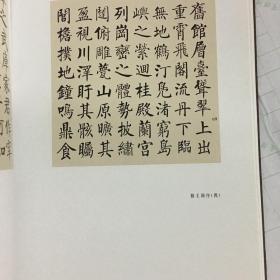 舊館層臺聳翠上出
重霄飛閣流丹下臨
無地鶴汀鳧渚窮島
嶼之縈迴桂殿蘭宮
列岡巒之體勢披繡
闥俯雕甍山原曠其
盈視川澤盱其駭矚
閭檐撲地鐘鳴鼎食
武庫家君作宰
滕王閣序(楷)